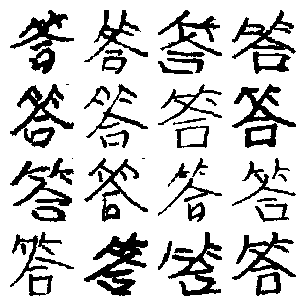 答答答答
答答答答
答答答答
答答答答